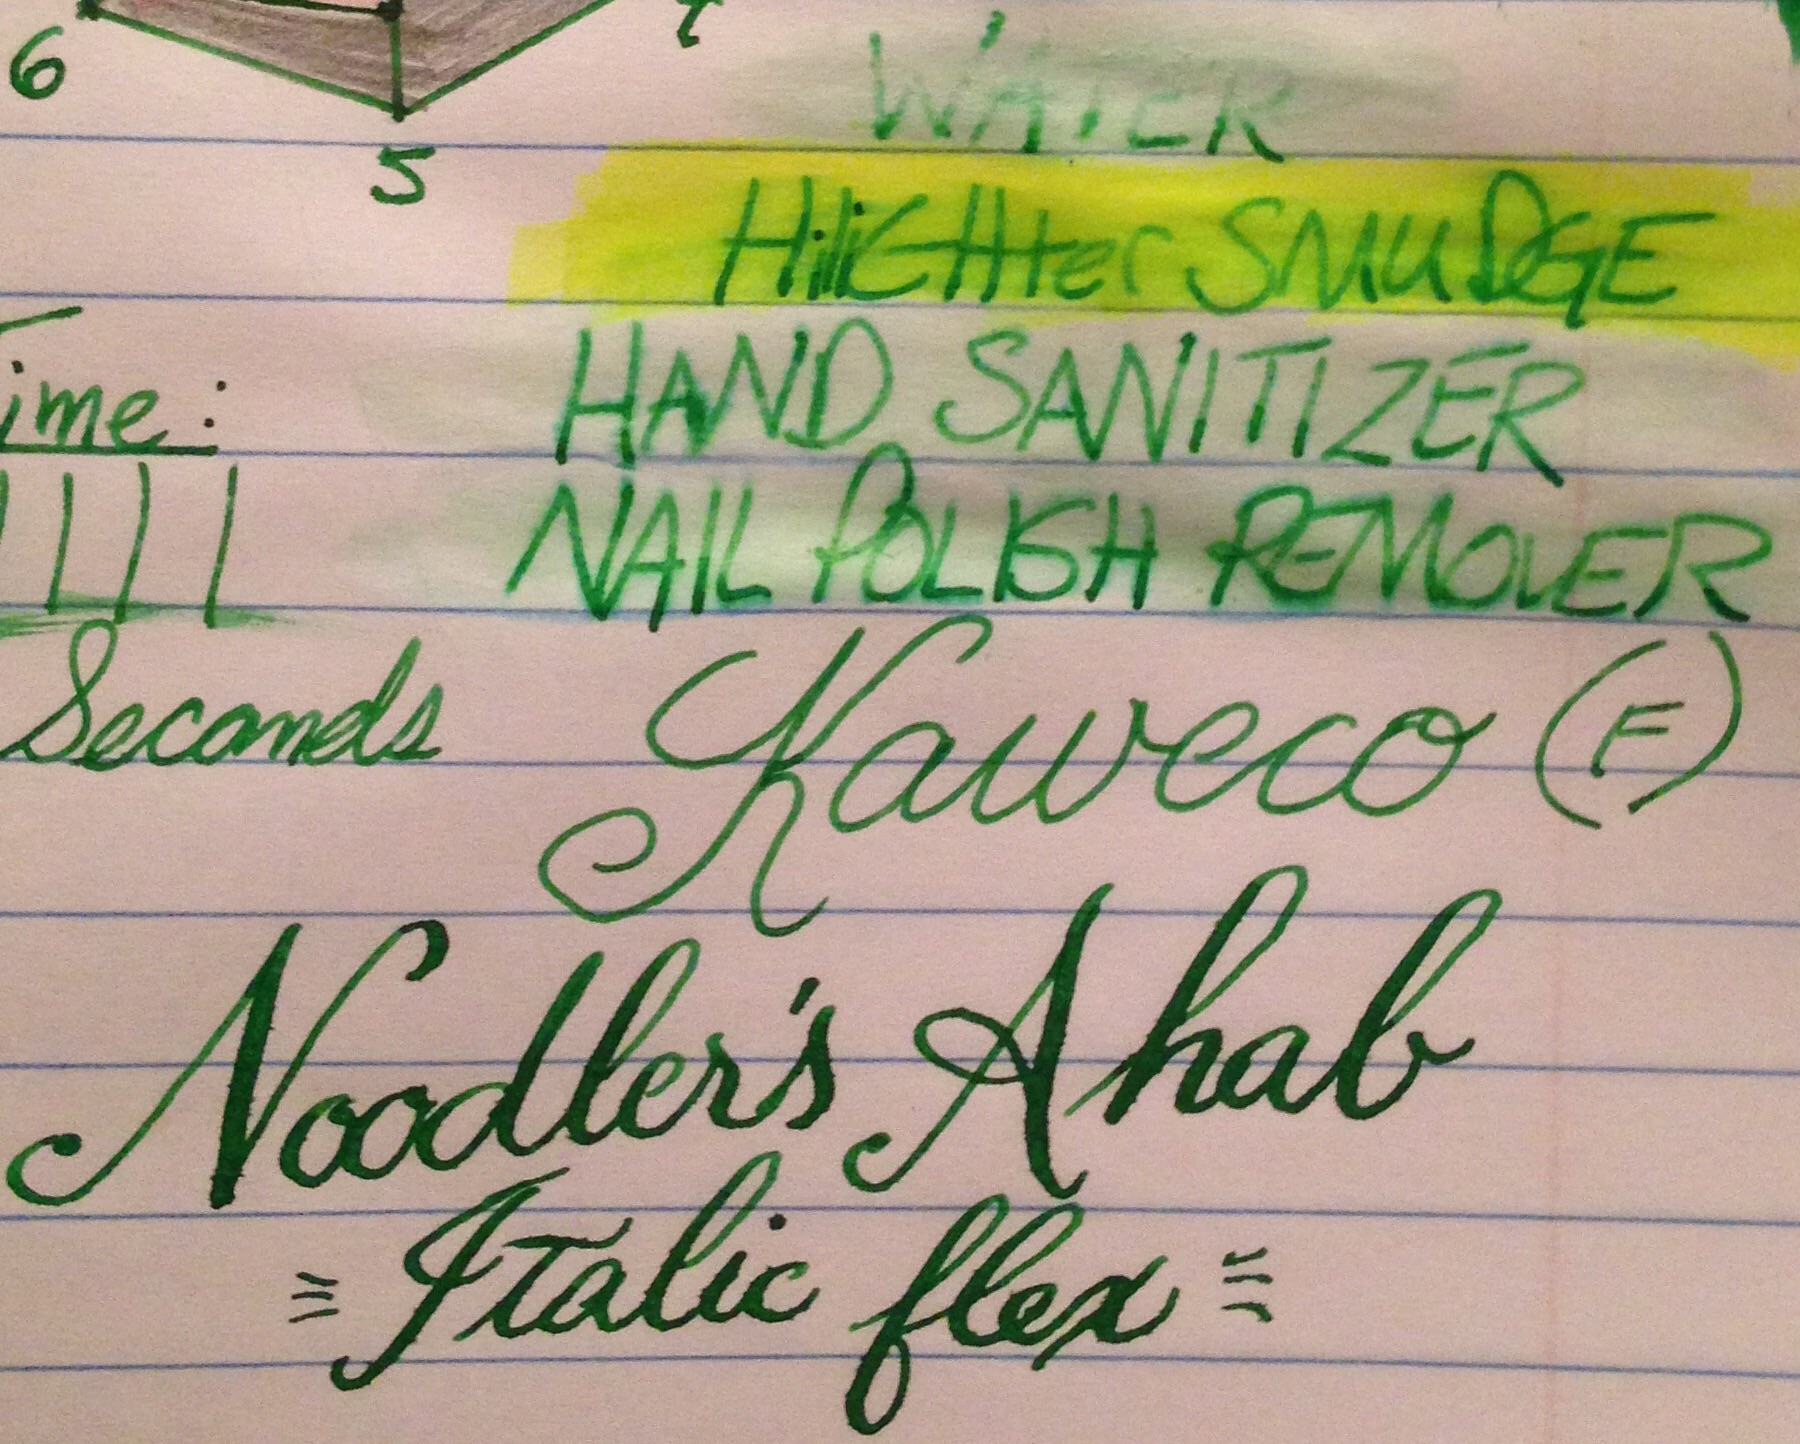 6
5
WATER
HiliGHter SMUDGE
HAND SANITIZER
Time:
NAIL POLISH REMOVER
Seconds
Kaweco (F)
Noodler's Ahab
= Italic flex =